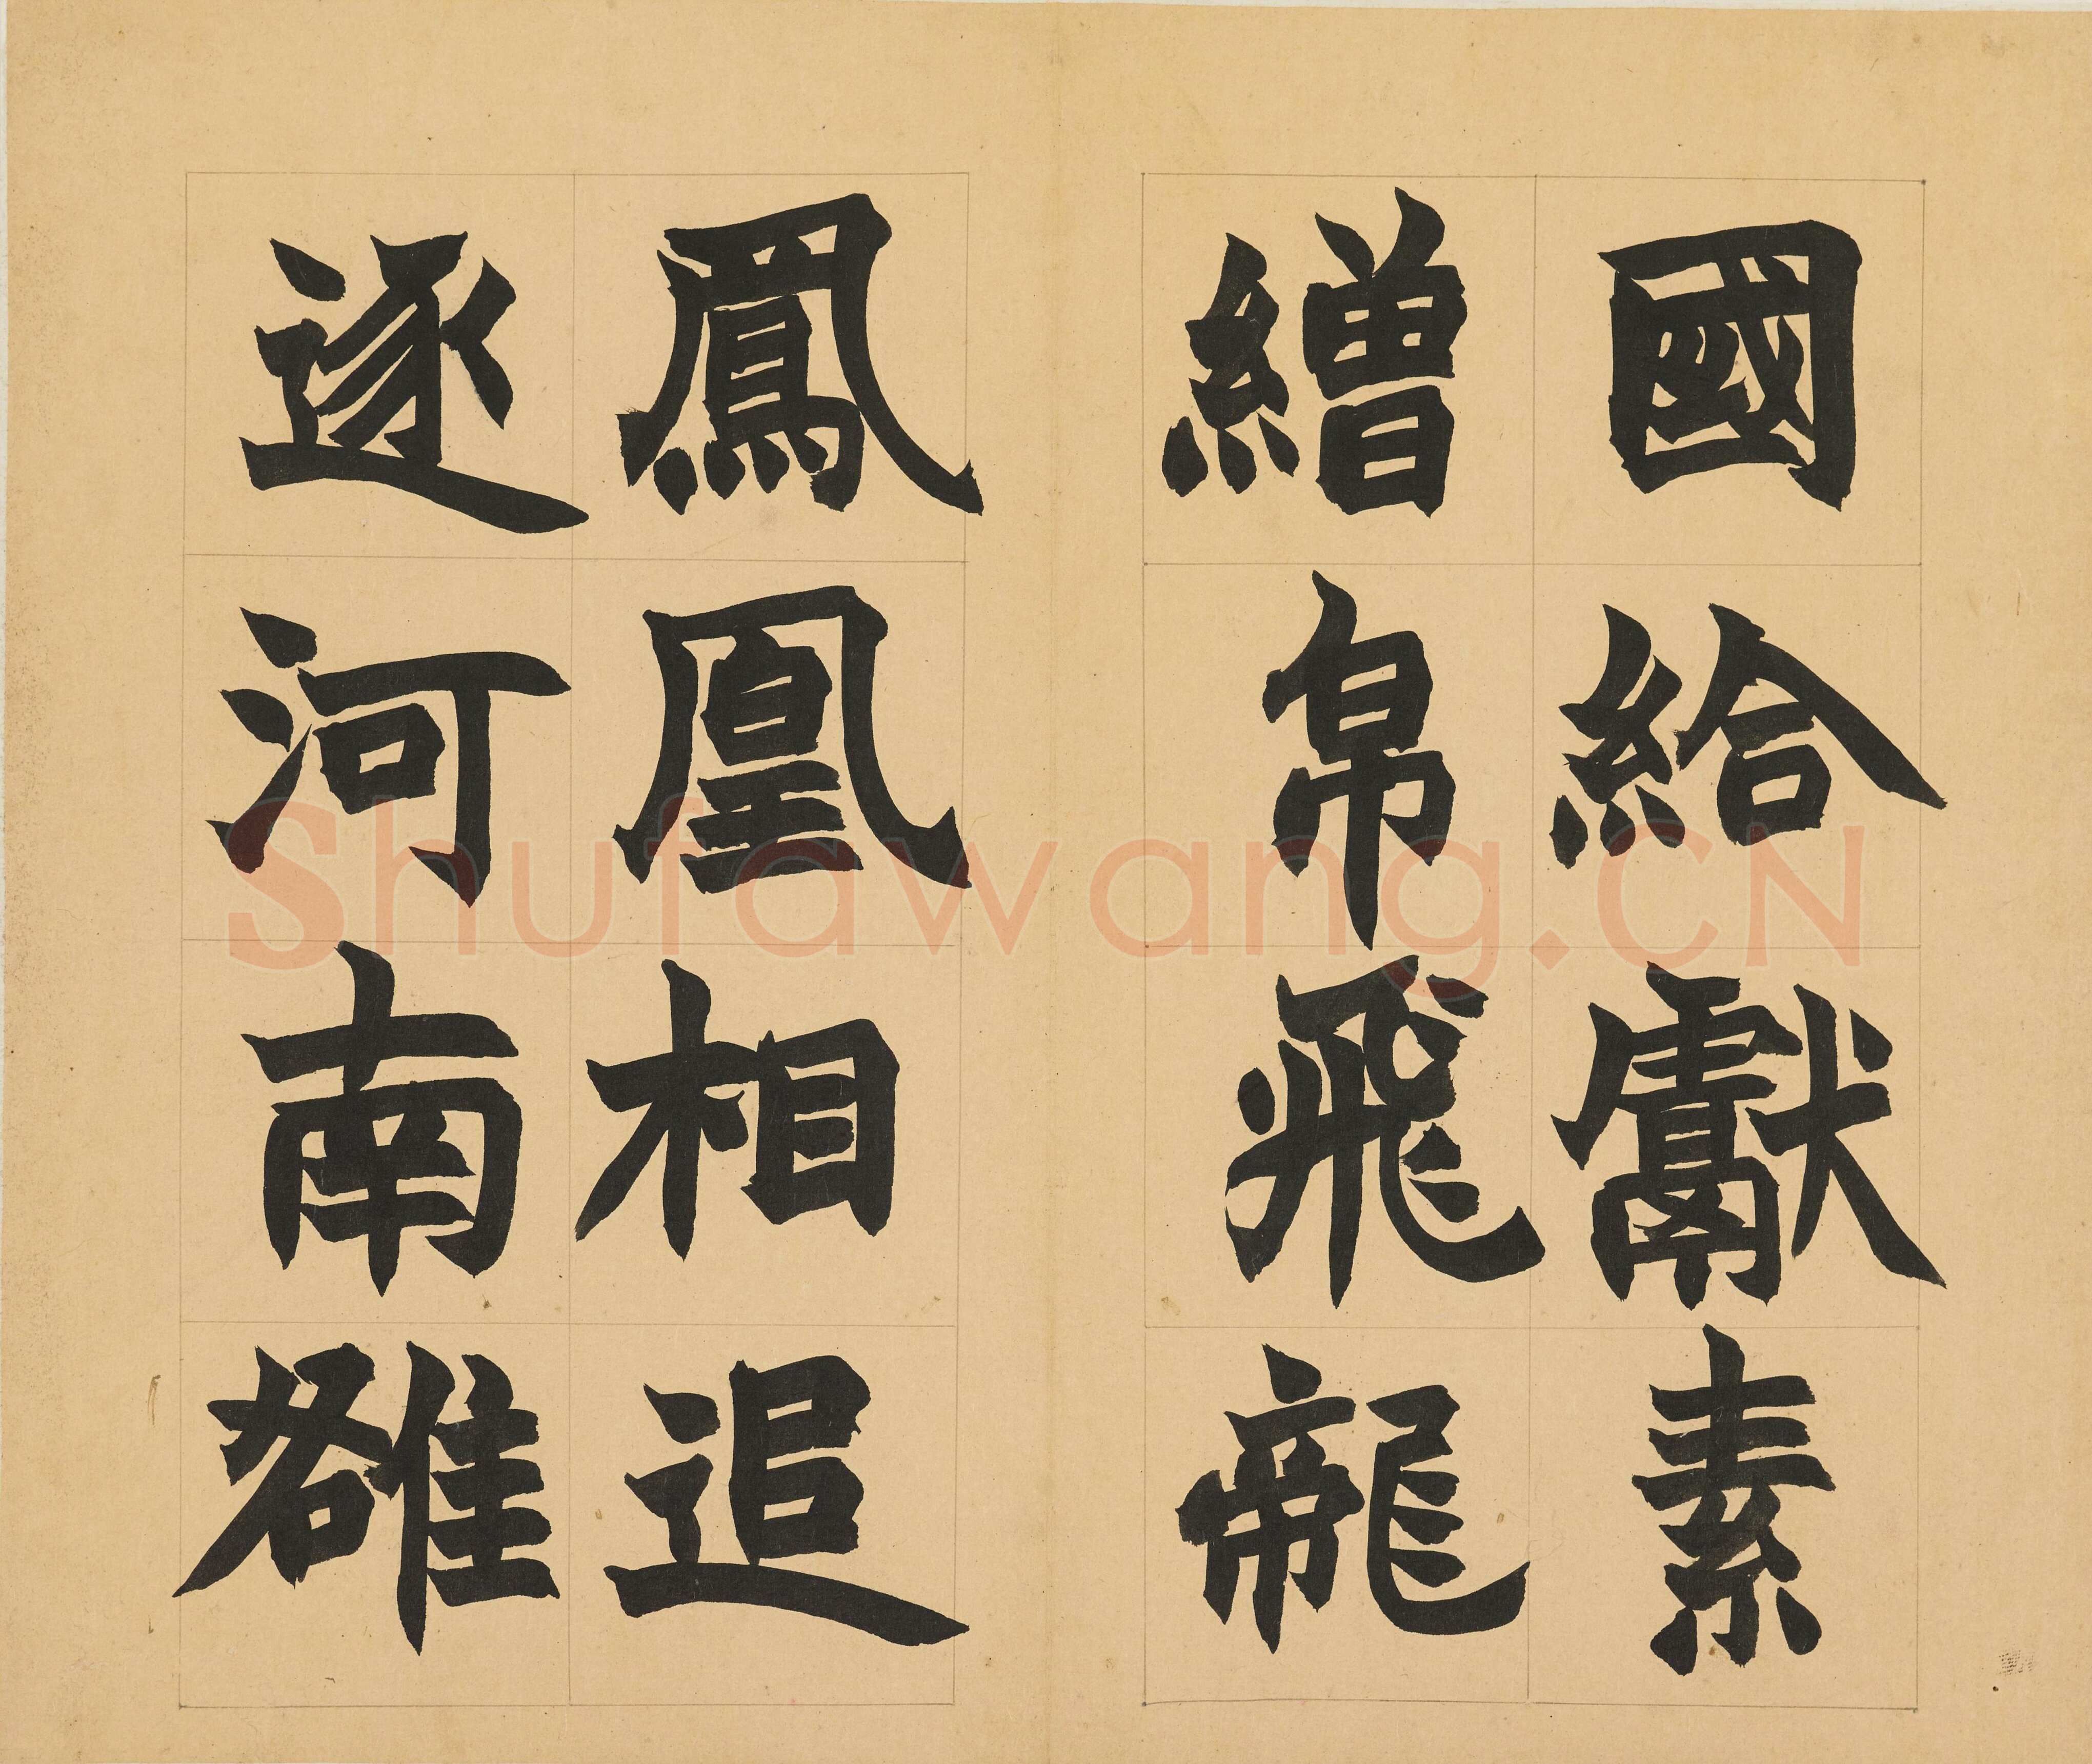 國給獻素
繒帛飛龍
鳳凰相追
逐河南雒
Shufawang.CN